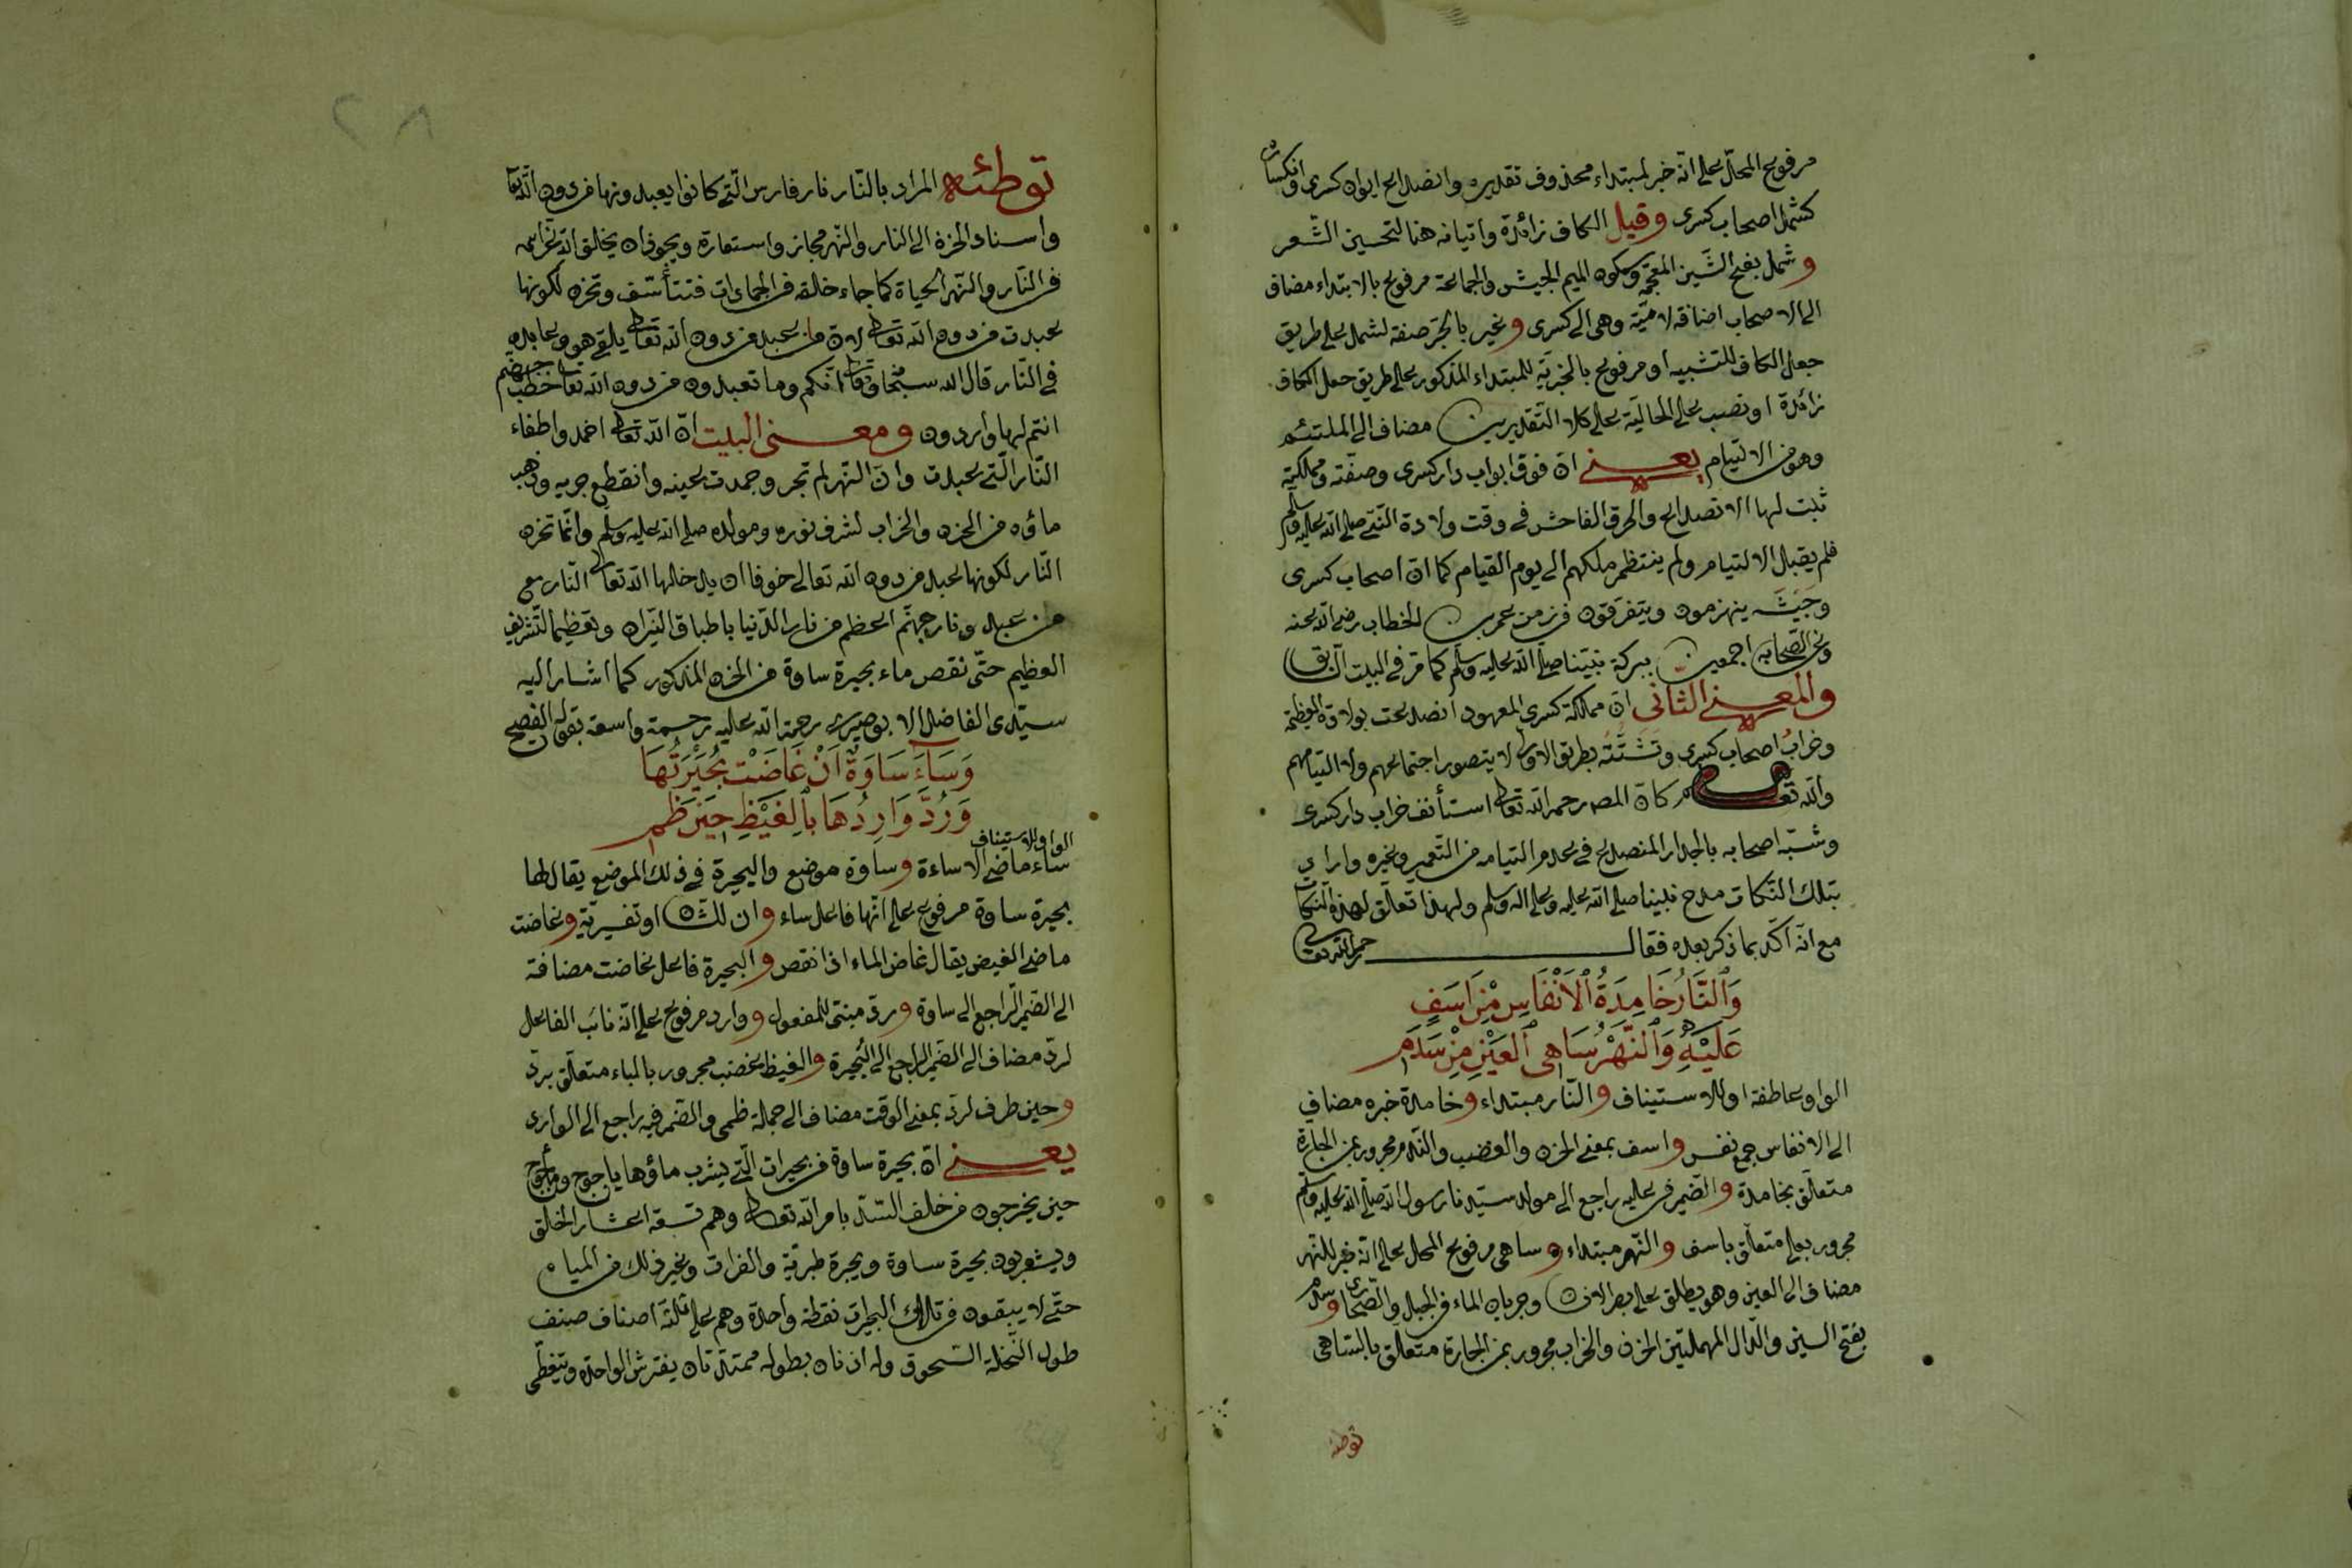 مرفوع المحلّ على انّه خبر لمبتداء محذوف تقديره وانصداع ايوان كسرى وانكساره
كشمل اصحاب كسرى وقيل الكاف زائدة واتيانه هنا لتحسين الشّعر
وشمل بفتح الشّين المعجمة وسكون الميم الجيش والجماعة مرفوع بالابتداء مضاف
الى الاصحاب اضافة لاميّة وهى الى كسرى وغير بالجرّ صفة لشمل على طريق
جعل الكاف للتشبيه او مرفوع بالخبريّة للمبتداء المذكور على طريق جعل الكاف
زائدة او نصب على الحاليّة على كلا التّقديرين مضاف الى الملتئم
وهو من الالتيام يعنى انّ فوق ابواب دار كسرى وصفّته ومملكته
ثبت لها الانصداع والخرق الفاحش فى وقت ولادة النّبىّ صلى الله عليه وسلم
فلم يقبل الالتيام ولم ينتظم ملكهم الى يوم القيام كما انّ اصحاب كسرى
وجيشه ينهزمون ويتفرّقون فى زمن عمر بن الخطاب رضى الله عنه
وعن الصّحابة اجمعين ببركة نبيّنا صلّى الله عليه وسلّم كما مرّ فى البيت السّابق
والمعنى الثانى انّ مملكة كسرى المعهود انصدعت بولادة العظيمة
وخراب اصحاب كسرى وتشتّته بطريق الاولى لا يتصور اجتماعهم ولا التيامهم
والله تعالى كانّ المص رحمه الله تعالى استأنف خراب دار كسرى
وشبّه اصحابه بالجدار المنصدع فى عدم التيامه من التعمير وغيره واراد
بتلك النّكات مدح نبينا صلى الله عليه وعلى اله وسلم ولهذا تعلّق لهذه النكات
مع انّه اكّد بما ذكر بعده فقال رحمه الله تعالى
وَالنَّارُ خَامِدَةُ الْاَنْفَاسِ مِنْ اَسَفٍ
عَلَيْهِ وَالنَّهْرُ سَاهِى الْعَيْنِ مِنْ سَدَمِ
الواو عاطفة او للاستيناف والنّار مبتداء وخامدة خبره مضاف
الى الانفاس جمع نفس واسف بمعنى الحزن والغضب والندم مجرور بمن الجارة
متعلّق بخامدة والضّمير فى عليه راجع الى مولد سيّدنا رسول الله صلّى الله عليه وسلم
مجرور بعلى متعلّق باسف والنّهر مبتداء وساهى مرفوع المحل على انّه خبر للنّهر
مضاف الى العين وهو يطلق على بصر الانسان وجريان الماء فى الجبل والصّحارى وسدم
بفتح السين والدّال المهملتين الحزن والخراب مجرور بمن الجارة متعلّق بالسّاهى
توطئه
٢٨
توطئه المراد بالنّار نار فارس الّتى كانوا يعبدونها من دون الله تعالى
واسناد الحزن الى النار والنّهر مجاز واستعارة ويجوز ان يخلق الله عزّ اسمه
فى النّار والنّهر الحياة كما جاء خلقه فى الجمادات فتتأسّف وتحزن لكونها
عبدت من دون الله تعالى لانّ من يعبد من دون الله تعالى يلقى هو وعابده
فى النّار قال الله سبحانه وتعالى انّكم وما تعبدون من دون الله تعالى حصب جهنّم
انتم لها واردون ومعنى البيت انّ الله تعالى اخمد واطفاء
النّار الّتى عبدت وانّ النّهر لم تجر وجمدت عينه وانقطع جريه وذهب
ماؤه من الحزن والخراب لشرف نوره ومولده صلى الله عليه وسلم وانّما تحزن
النّار لكونها عبد من دون الله تعالى خوفا ان يدخلها الله تعالى النّار مع
من عبد ونار جهنّم اعظم من نار الدّنيا باطباق النّيران وتعظيما لتشريف
العظيم حتّى نقص ماء بحيرة ساوة من الحزن المذكور كما اشار اليه
سيّدى الفاضل الابوصيرى رحمة الله عليه رحمة واسعة بقوله الفصيح
وَسَاءَ سَاوَةَ اَنْ غَاضَتْ بُحَيْرَتُهَا
وَرُدَّ وَارِدُهَا بِالْغَيْظِ حِينَ ظَمِ
الواو للاستيناف
ساء ماضى الاساءة وساوة موضع والبحيرة فى ذلك الموضع يقال لها
بحيرة ساوة مرفوع على انّها فاعل ساء وان للشّان او تفسيريّة وغاضت
ماضى الغيض يقال غاض الماء اذا نقص والبحيرة فاعل غاضت مضافة
الى الضّمير الراجع الى ساوة وردّ مبنىّ للمفعول ووارد مرفوع على انّه نائب الفاعل
لردّ مضاف الى الضّمير الراجع الى البحيرة والغيظ غضب مجرور بالباء متعلّق بردّ
وحين ظرف لردّ بمعنى الوقت مضاف الى جملة ظمى والضمير فيه راجع الى الوارد
يعنى انّ بحيرة ساوة من بحيرات الّتى يشرب ماؤها ياجوج ومأجوج
حين يخرجون من خلف السّدّ بامر الله تعالى وهم تسعة اعشار الخلق
ويشربون بحيرة ساوة وبحيرة طبريّة والفرات وغير ذلك من المياه
حتّى لا يبقون فى تلك البحيرات نقطة واحدة وهم على ثلثة اصناف صنف
طول النّخلة السّحوق وله اذنان بطوله ممتدّتان يفترش الواحدة ويتغطّى